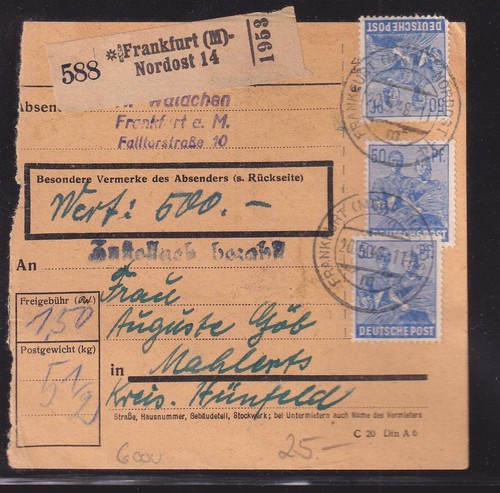 588 *Frankfurt (M)-
Nordost 14
1953
Absen
Walachen
Frankfurt a. M.
Falltorstraße 10
Besondere Vermerke des Absenders (s. Rückseite)
Wert: 500.-
Zustellgeb. bezahlt
An
Frau
Auguste Göb
in Mahlerts
Kreis. Hünfeld
Freigebühr
1,50
Postgewicht (kg)
5 1/2
Straße, Hausnummer, Gebäudeteil, Stockwerk; bei Untermietern auch Name des Vermieters
C 20 Din A 6
6000
25.-
DEUTSCHE POST
50
50 Pf.
DEUTSCHE POST
50
DEUTSCHE POST
FRANKFURT (MAIN)
FRANKFURT (MAIN)